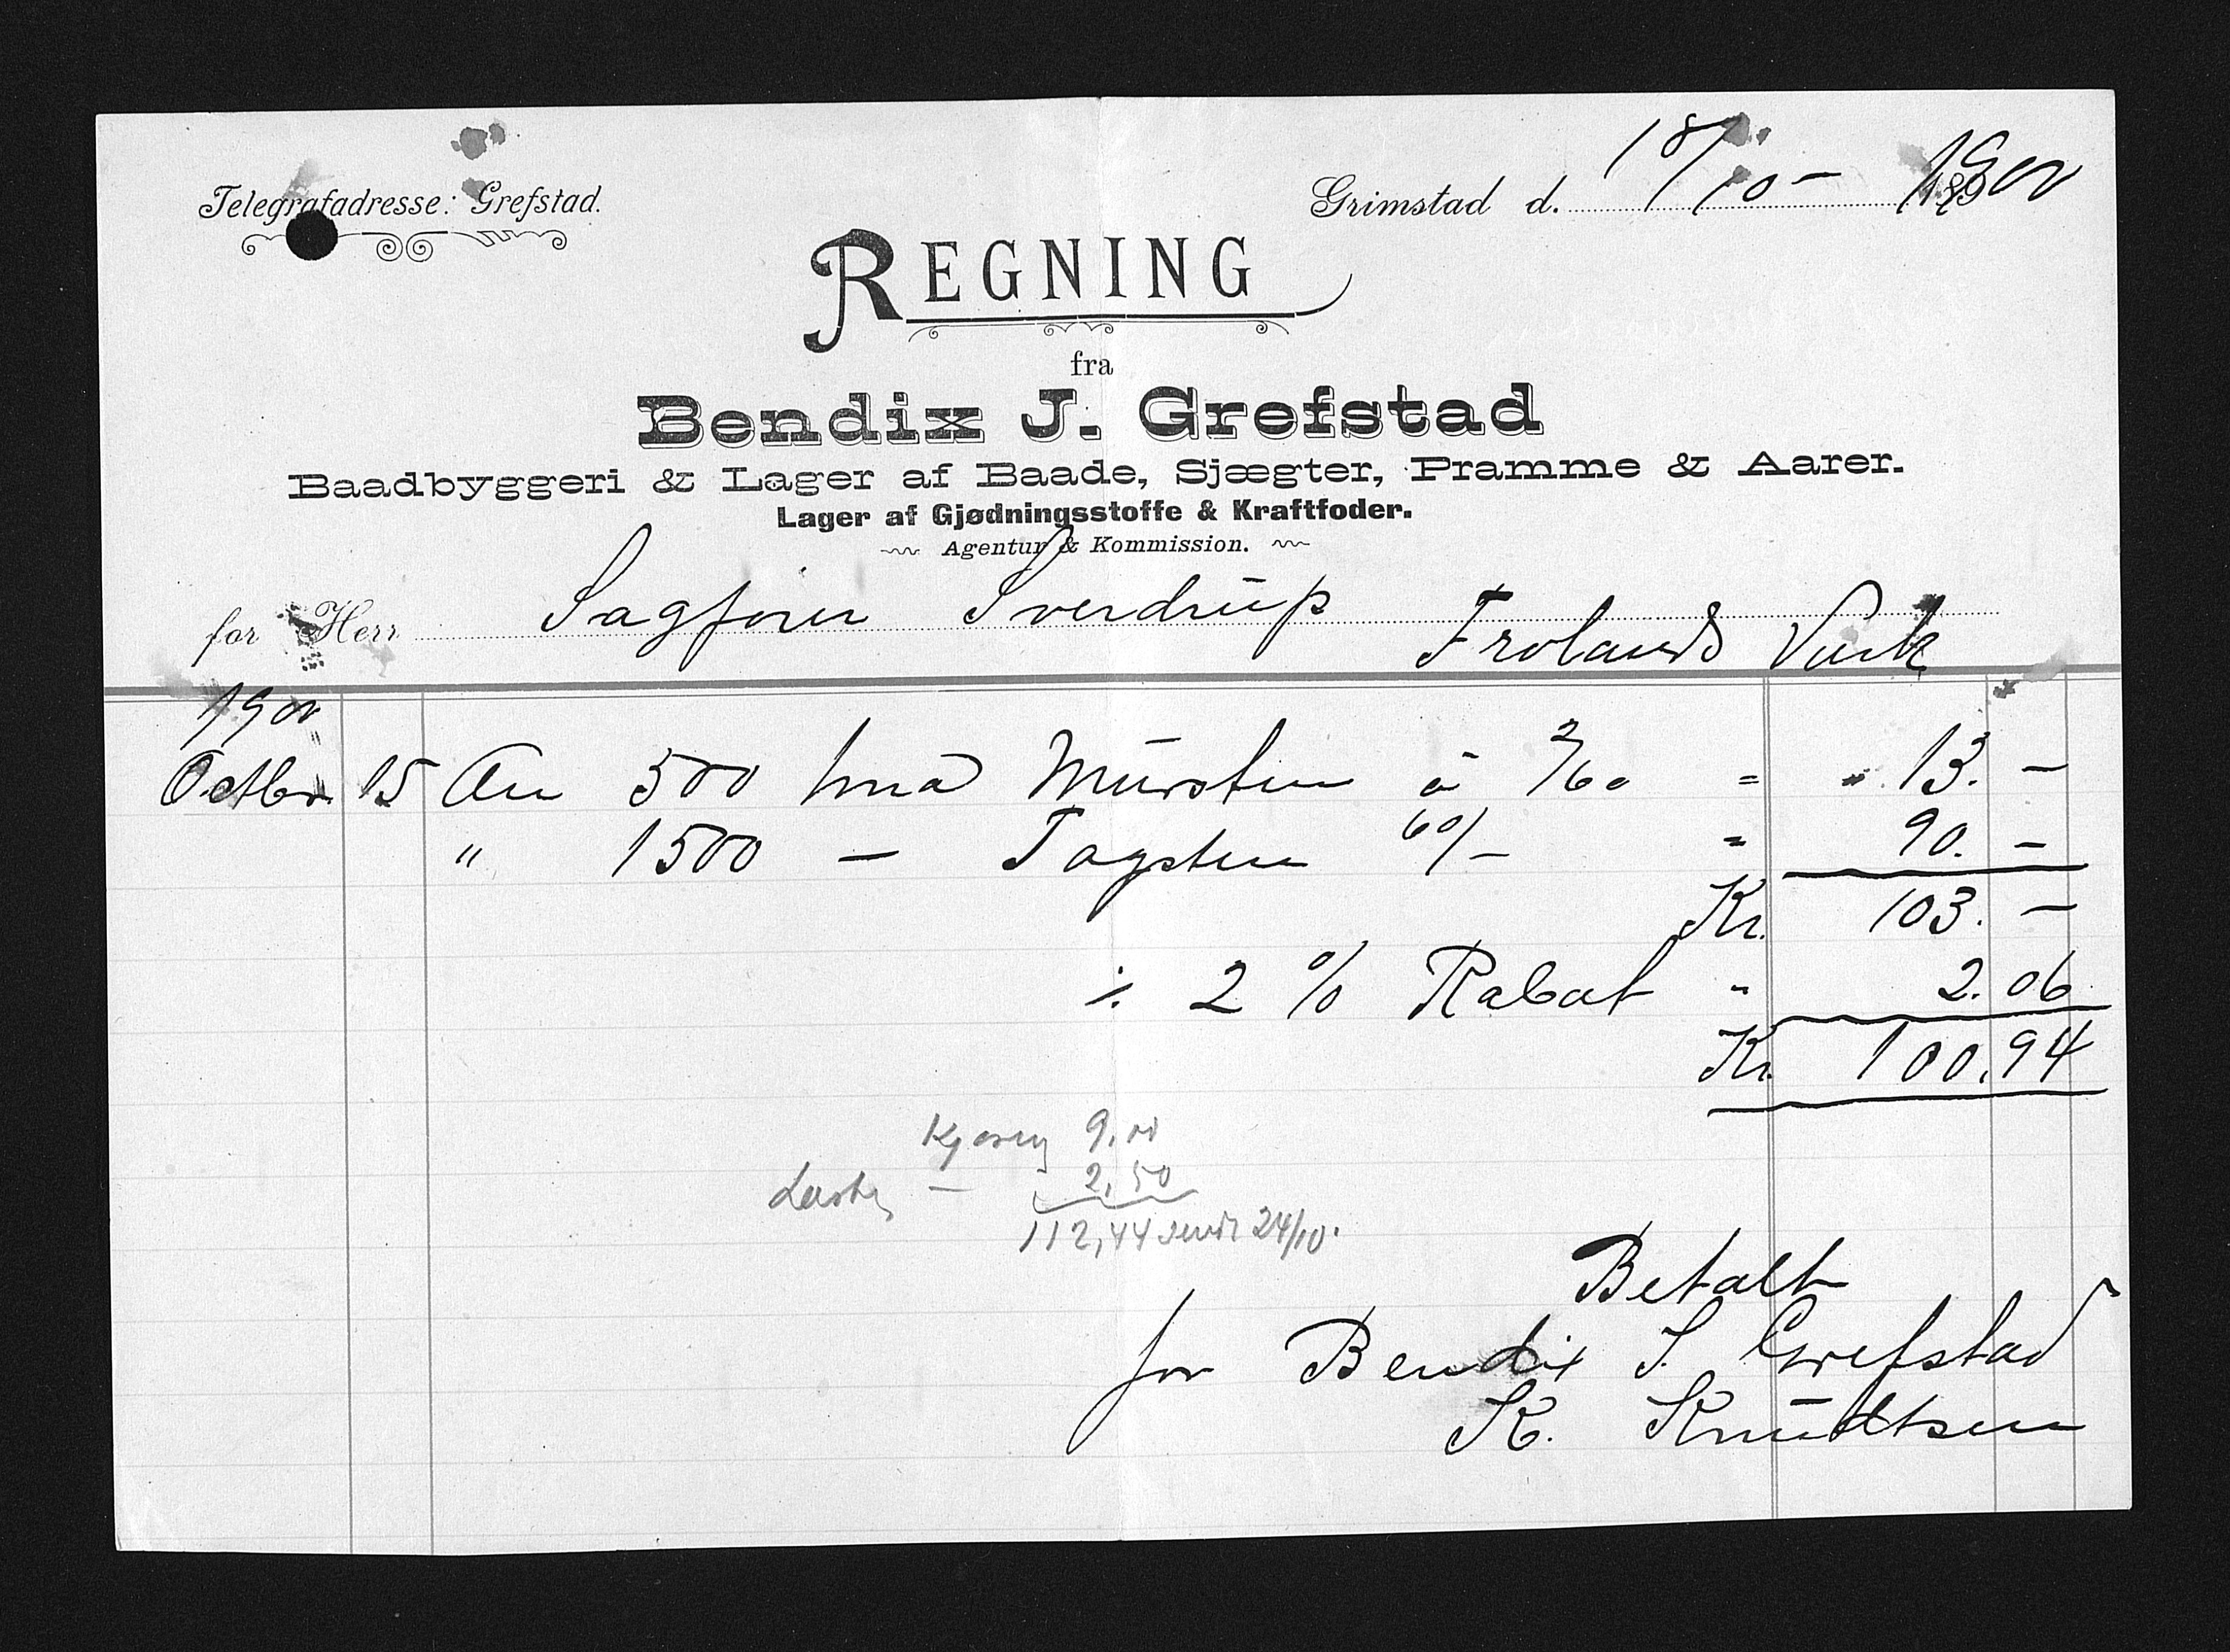 Telegrafadresse: Grefstad.
Grimstad d. 18/10 - 1900
REGNING
fra
Bendix J. Grefstad
Baadbyggeri & Lager af Baade, Sjægter, Pramme & Aarer.
Lager af Gjødningsstoffe & Kraftfoder.
Agentur & Kommission.
for Herr Sagfører Sverdrup Frolands Værk
1900
Octbr. 15 An 500 små Mürsten á 2/60 = " 13. -
" 1500 - Tagsten 60/- = 90. -
Kr. 103. -
÷ 2 % Rabat " 2.06
Kr. 100.94
Kjøring 9,00
- 2,50
112,44 sendt 24/10.
Betalt
for Bendix J. Grefstad
K. Knüdtsen